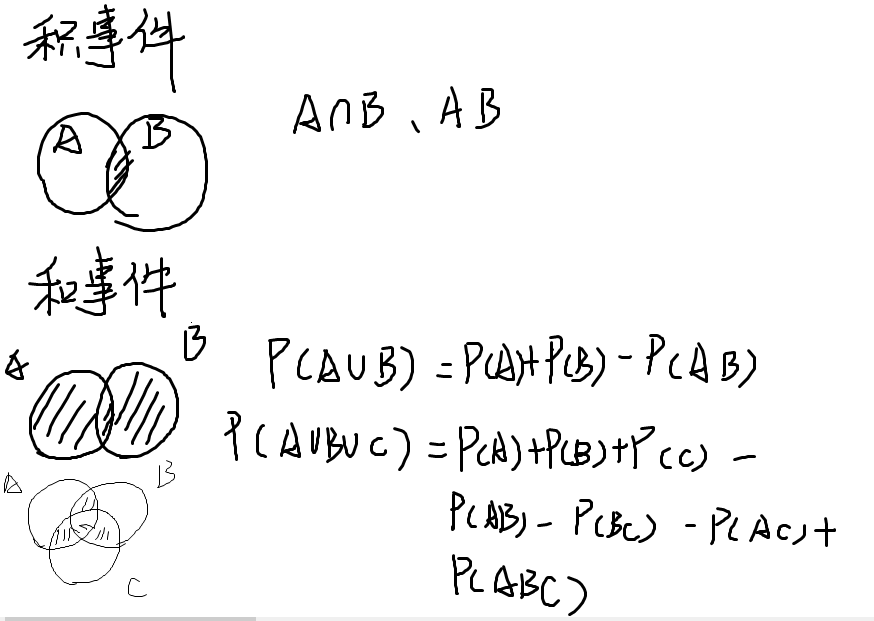 积事件
A B
A∩B、AB
和事件
A B
P(A∪B) = P(A)+P(B) - P(AB)
A B
P(A∪B∪C) = P(A)+P(B)+P(C) -
P(AB) - P(BC) - P(AC) +
P(ABC)
C